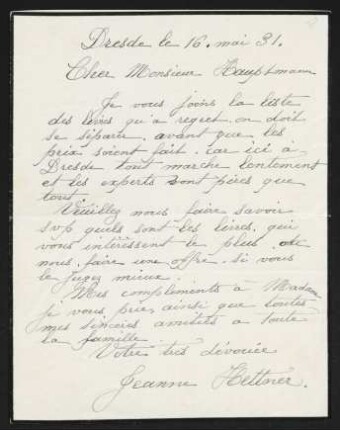 Dresde le 16. mai 31.
Cher Monsieur Hauptmann
Je vous joins la liste
des livres qu'a regret on doit
se séparer avant que les
prix soient fait. Car ici a
Dresde tout marche lentement
et les experts sont pires que
tout.
Veuillez nous faire savoir
svp quels sont les livres qui
vous intéressent le plus, et de
nous faire une offre si vous
le jugez mieux.
Mes compliments à Madame
je vous prie, ainsi que toutes
mes sincères amitiés à toute
la famille
Votre très dévouée
Jeanne Hettner.